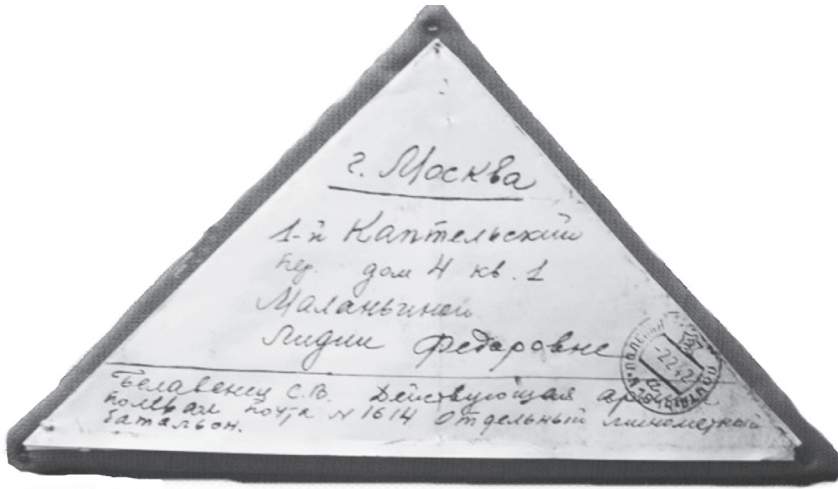 г. Москва
1-й Каптельский
пер. дом 4 кв. 1
Маланьиной
Лидии Федоровне
Белавенец С.В. Действующая армия
полевая почта № 1614 Отдельный минометный
батальон.
2.2.42